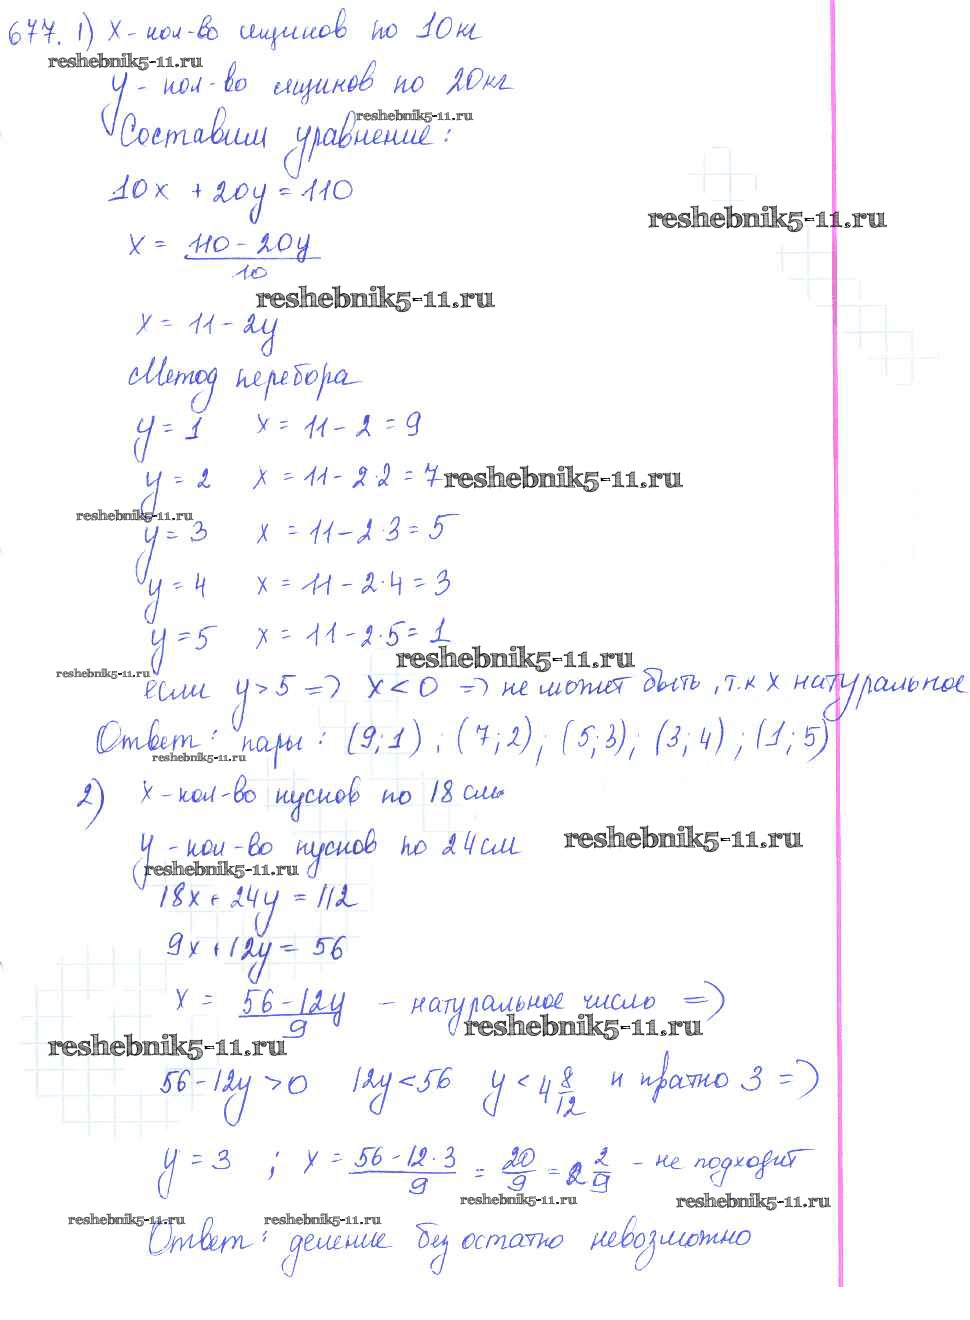 677. 1) x - кол-во ящиков по 10 кг
reshebnik5-11.ru
y - кол-во ящиков по 20 кг
reshebnik5-11.ru
Составим уравнение:
10x + 20y = 110
reshebnik5-11.ru
x = (110 - 20y)/10
reshebnik5-11.ru
x = 11 - 2y
Метод перебора
y = 1 x = 11 - 2 = 9
y = 2 x = 11 - 2·2 = 7 reshebnik5-11.ru
reshebnik5-11.ru
y = 3 x = 11 - 2·3 = 5
y = 4 x = 11 - 2·4 = 3
y = 5 x = 11 - 2·5 = 1
reshebnik5-11.ru
reshebnik5-11.ru
если y > 5 => x < 0 => не может быть, т.к x натуральное
Ответ: пары: (9;1); (7;2); (5;3); (3;4); (1;5)
reshebnik5-11.ru
2) x - кол-во кусков по 18 см
y - кол-во кусков по 24 см reshebnik5-11.ru
reshebnik5-11.ru
18x + 24y = 112
9x + 12y = 56
x = (56 - 12y)/9 - натуральное число =>
reshebnik5-11.ru
reshebnik5-11.ru
56 - 12y > 0 12y < 56 y < 4 8/12 и кратно 3 =>
y = 3 ; x = (56 - 12·3)/9 = 20/9 = 2 2/9 - не подходит
reshebnik5-11.ru reshebnik5-11.ru
reshebnik5-11.ru reshebnik5-11.ru
Ответ: деление без остатка невозможно